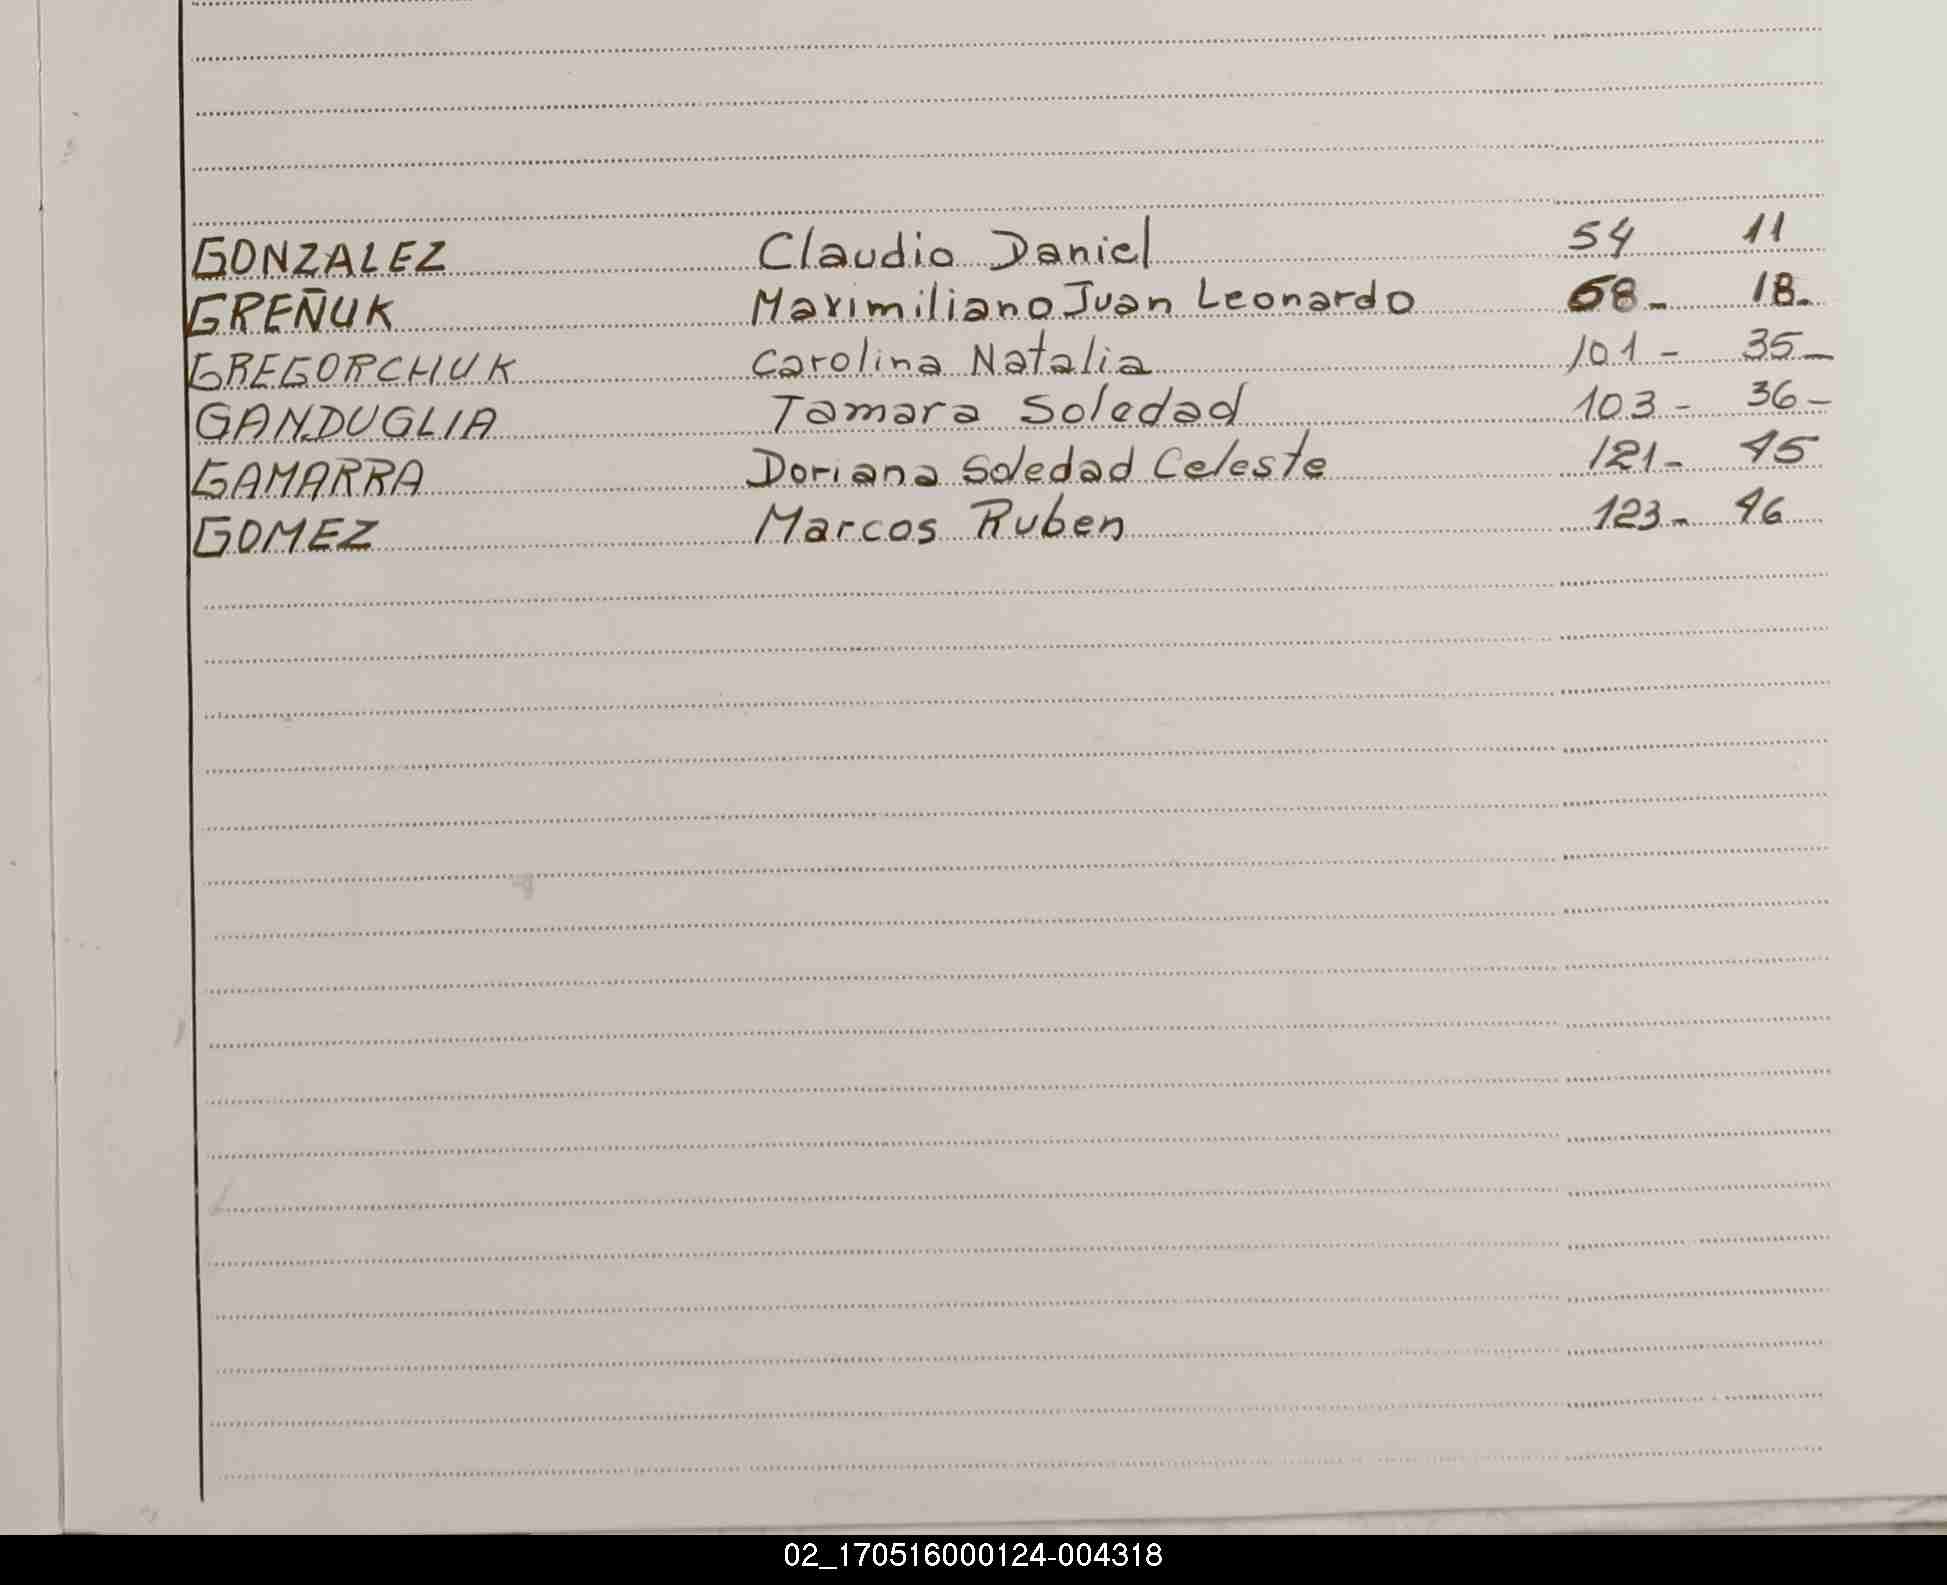 GONZALEZ Claudio Daniel 54 11
GREÑUK Maximiliano Juan Leonardo 68- 18-
GREGORCHUK Carolina Natalia 101- 35-
GANDUGLIA Tamara Soledad 103- 36-
GAMARRA Doriana Soledad Celeste 121- 45
GOMEZ Marcos Ruben 123- 46
02_170516000124-004318